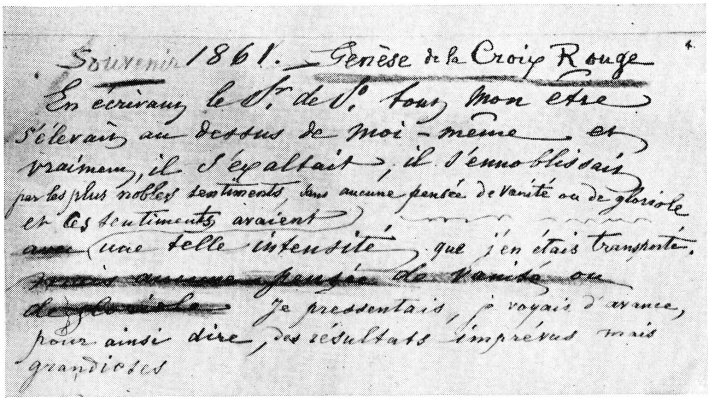 Souvenir 1861. — Genèse de la Croix Rouge
En écrivant le Sr. de So. tout mon être
s'élevait au dessus de moi-même et
vraiment, il s'exaltait, il s'ennoblissait
par les plus nobles sentiments, sans aucune pensée de vanité ou de gloriole
et ces sentiments avaient
avec une telle intensité, que j'en étais transporté.
mais aucune pensée de vanité ou
de gloriole Je pressentais, je voyais d'avance,
pour ainsi dire, des résultats imprévus mais
grandioses